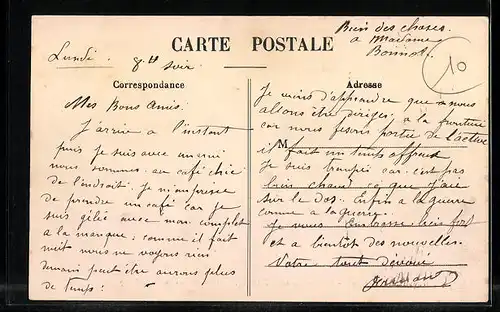 Bien des choses
a Madame
Lundi. 8h soir
CARTE POSTALE
10
Correspondance
Adresse
Mes Bons Amis.
J'arrive a l'instant
puis je suis avec un ami
nous sommes au café chic
de l'endroit. Je m'empresse
de prendre un café car je
suis gelée avec mon complet
a la manque; comme il fait
nuit nous ne voyons rien
demain peut être aurons plus
de temps.
Je viens d'apprendre que nous
allons être dirigés a la frontière
car nous faisons partie de l'active
M
il fait un temps affreux
Je suis trempée car c'est pas
bien chaud ce que j'ai
sur le dos. Enfin a la guerre
comme a la guerre.
Je vous embrasse bien fort
et a bientôt des nouvelles.
Votre tout dévoué